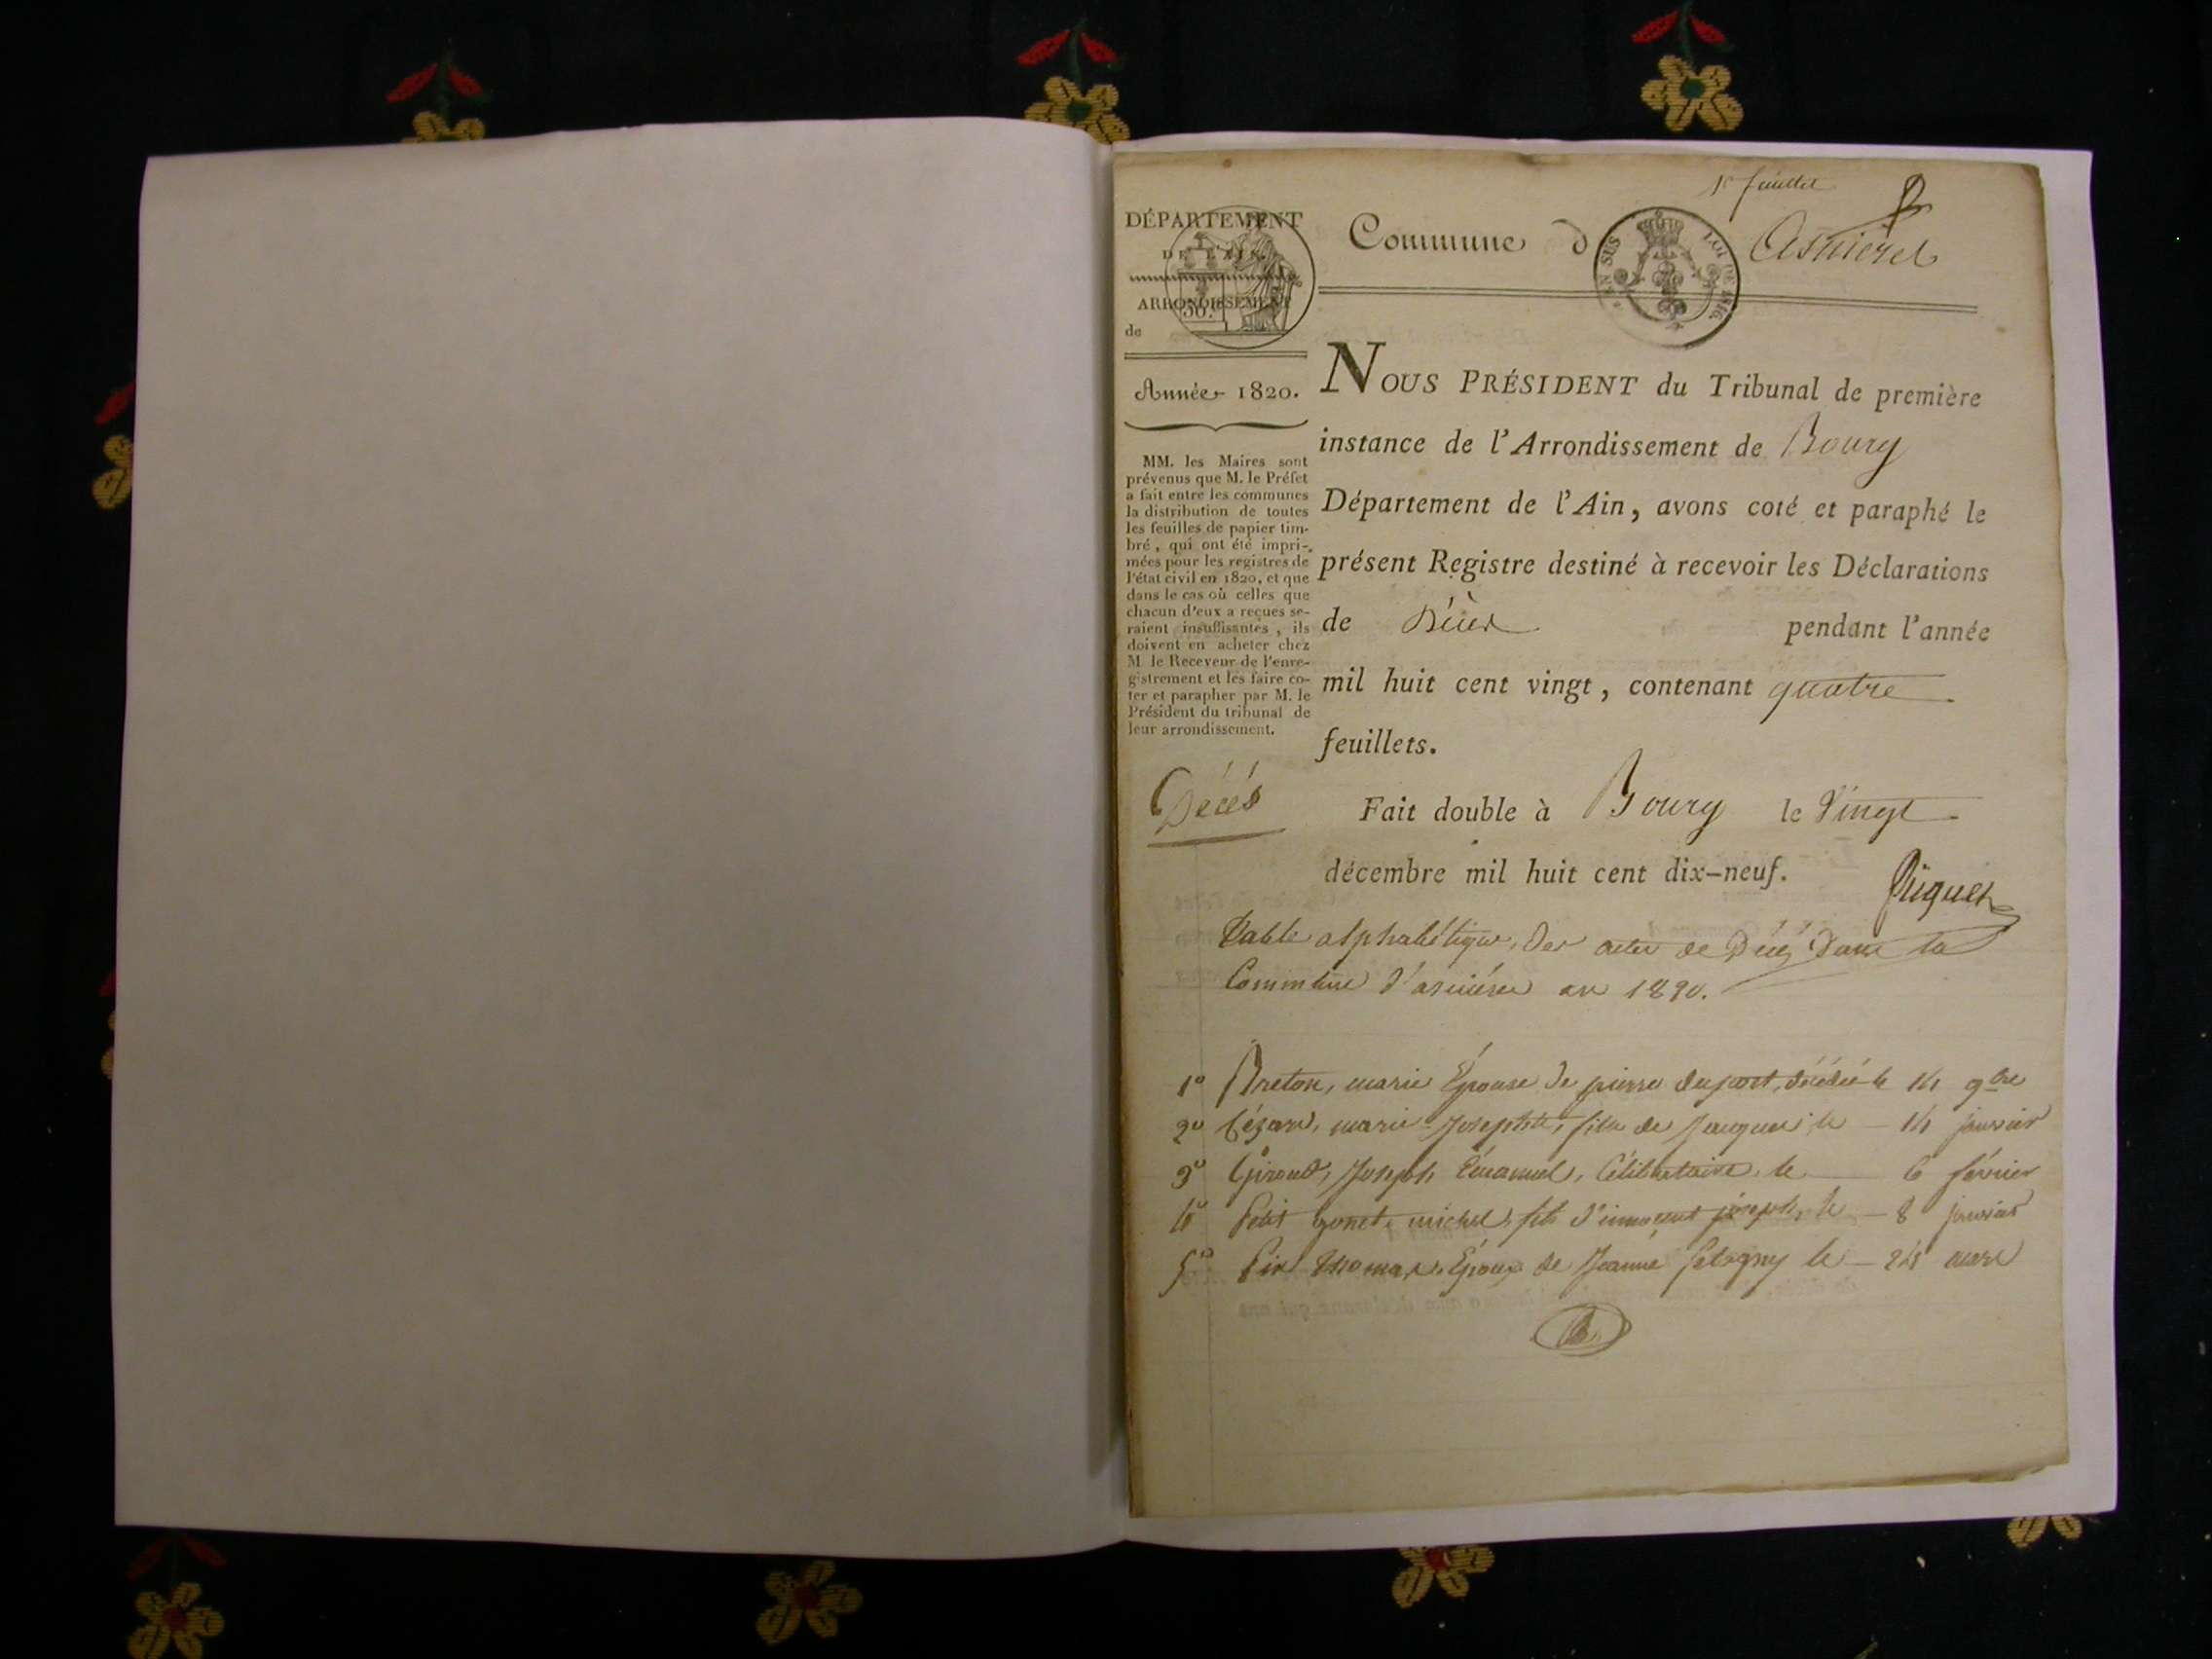 1er feuillet
DÉPARTEMENT
DE L'AIN.
ARRONDISSEMENT
de
30.
Commune d' Asnières
EN SUS
LOI DE 1816.
Année 1820.
MM. les Maires sont
prévenus que M. le Préfet
a fait entre les communes
la distribution de toutes
les feuilles de papier tim-
bré, qui ont été impri-
mées pour les registres de
l'état civil en 1820, et que
dans le cas où celles que
chacun d'eux a reçues se-
raient insuffisantes, ils
doivent en acheter chez
M. le Receveur de l'enre-
gistrement et les faire co-
ter et parapher par M. le
Président du tribunal de
leur arrondissement.
Décés
NOUS PRÉSIDENT du Tribunal de première
instance de l'Arrondissement de Bourg
Département de l'Ain, avons coté et paraphé le
présent Registre destiné à recevoir les Déclarations
de Décès pendant l'année
mil huit cent vingt, contenant quatre
feuillets.
Fait double à Bourg le Vingt
décembre mil huit cent dix-neuf.
Table alphabétique, des actes de Décès dans la
Commune d'asnières an 1820.
1° Breton, marie Épouse de pierre duport, décédée le 14 9bre
2° Cézard, marie Josephte, fille de Jacques, le – 14 janvier
3° Giroud, Joseph Émanuel, Célibataire, le 6 février
4° Petit gonet, michel, fils d'innocent joseph, le – 8 janvier
5° Pin Thomas, Époux de Jeanne le – 24 mars